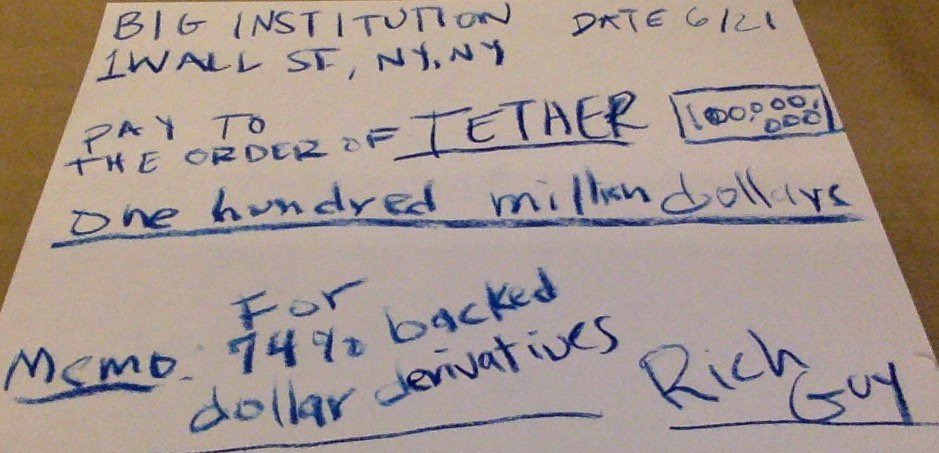 BIG INSTITUTION DATE 6/21
1 WALL ST, NY, NY
PAY TO
THE ORDER OF TETHER 100,000,
000
one hundred million dollars
For
Memo: 74% backed
dollar derivatives
Rich
Guy